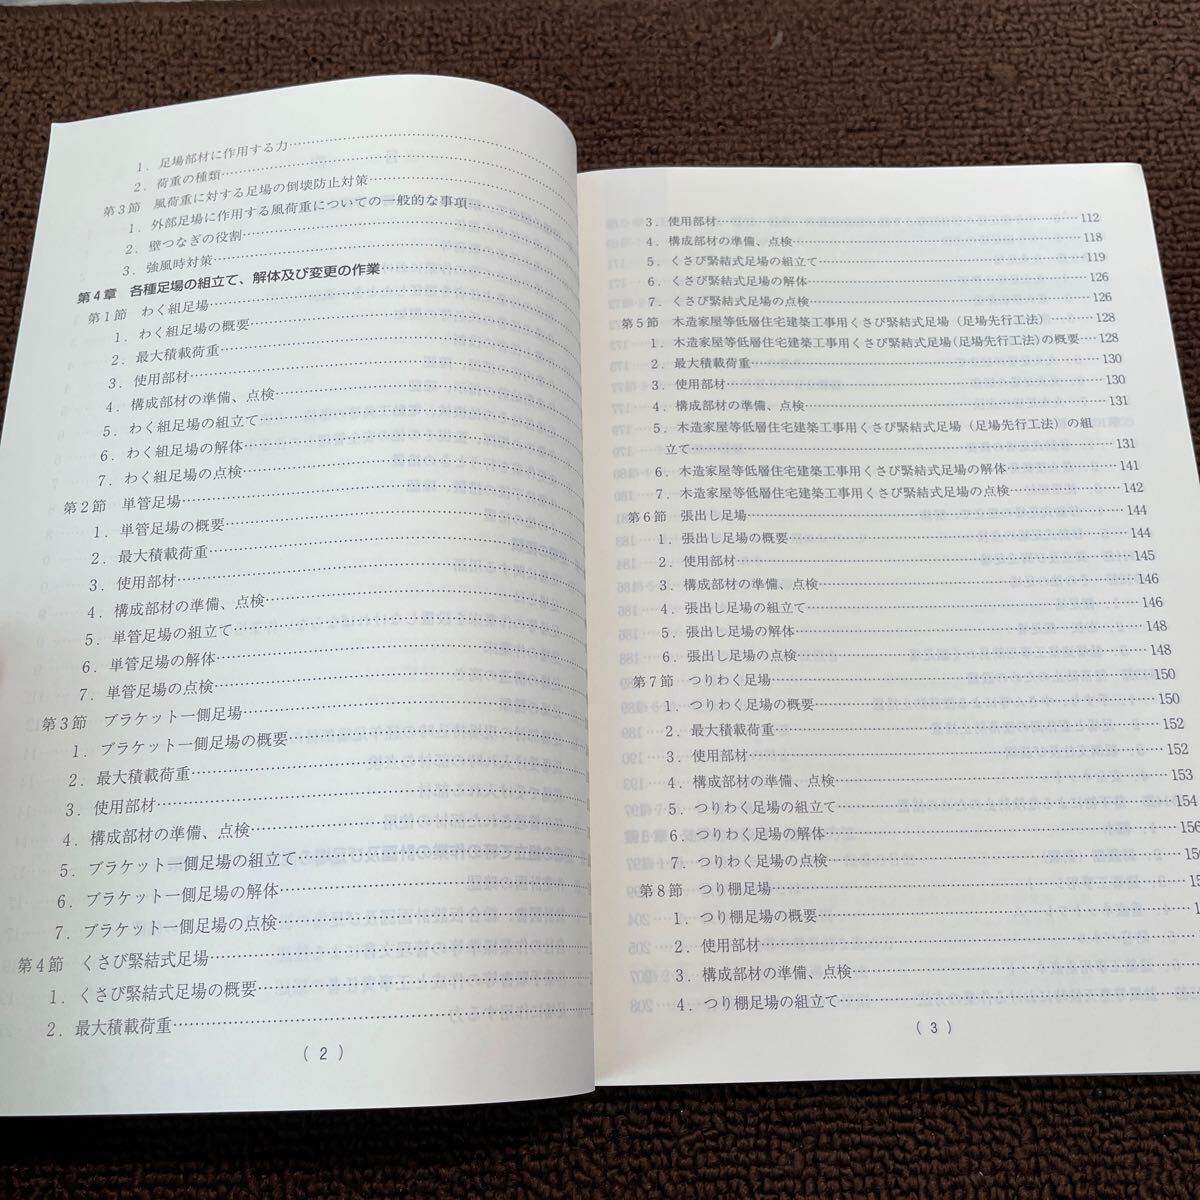 1．足場部材に作用する力
2．荷重の種類
第3節　風荷重に対する足場の倒壊防止対策
1．外部足場に作用する風荷重についての一般的な事項
2．壁つなぎの役割
3．強風時対策
第4章　各種足場の組立て、解体及び変更の作業
第1節　わく組足場
1．わく組足場の概要
2．最大積載荷重
3．使用部材
4．構成部材の準備、点検
5．わく組足場の組立て
6．わく組足場の解体
7．わく組足場の点検
第2節　単管足場
1．単管足場の概要
2．最大積載荷重
3．使用部材
4．構成部材の準備、点検
5．単管足場の組立て
6．単管足場の解体
7．単管足場の点検
第3節　ブラケット一側足場
1．ブラケット一側足場の概要
2．最大積載荷重
3．使用部材
4．構成部材の準備、点検
5．ブラケット一側足場の組立て
6．ブラケット一側足場の解体
7．ブラケット一側足場の点検
第4節　くさび緊結式足場
1．くさび緊結式足場の概要
2．最大積載荷重
（ 2 ）
3．使用部材 112
4．構成部材の準備、点検 118
5．くさび緊結式足場の組立て 119
6．くさび緊結式足場の解体 126
7．くさび緊結式足場の点検 126
第5節　木造家屋等低層住宅建築工事用くさび緊結式足場（足場先行工法） 128
1．木造家屋等低層住宅建築工事用くさび緊結式足場(足場先行工法)の概要 128
2．最大積載荷重 130
3．使用部材 130
4．構成部材の準備、点検 131
5．木造家屋等低層住宅建築工事用くさび緊結式足場（足場先行工法）の組
立て 131
6．木造家屋等低層住宅建築工事用くさび緊結式足場の解体 141
7．木造家屋等低層住宅建築工事用くさび緊結式足場の点検 142
第6節　張出し足場 144
1．張出し足場の概要 144
2．使用部材 145
3．構成部材の準備、点検 146
4．張出し足場の組立て 146
5．張出し足場の解体 148
6．張出し足場の点検 148
第7節　つりわく足場 150
1．つりわく足場の概要 150
2．最大積載荷重 152
3．使用部材 152
4．構成部材の準備、点検 153
5．つりわく足場の組立て 154
6．つりわく足場の解体 156
7．つりわく足場の点検
第8節　つり棚足場
1．つり棚足場の概要
2．使用部材
3．構成部材の準備、点検
4．つり棚足場の組立て
（ 3 ）